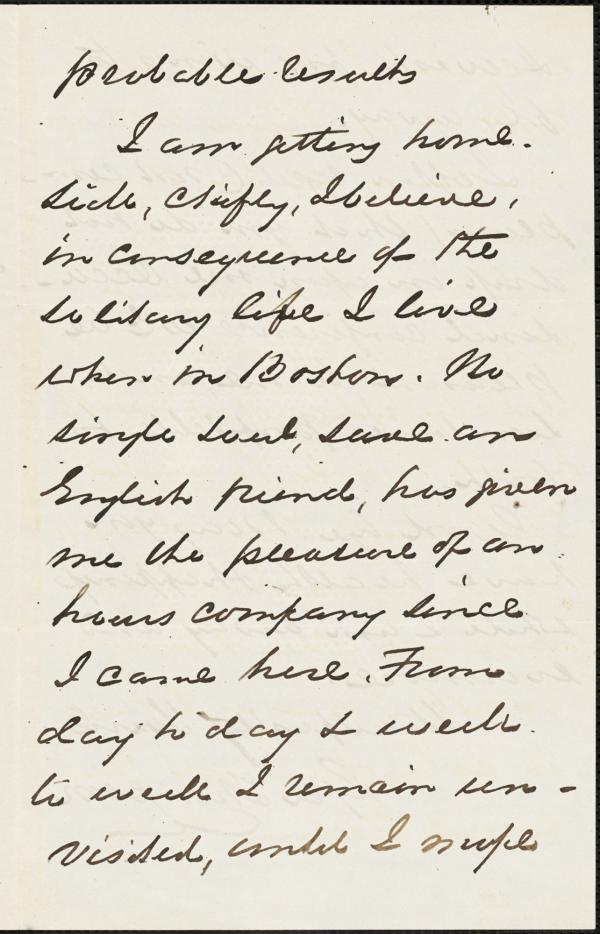 probable results
I am getting home-
sick, chiefly, I believe,
in consequence of the
solitary life I live
when in Boston. No
single soul, save an
English friend, has given
me the pleasure of an
hours company since
I came here. From
day to day & week
to week I remain un-
visited, until I